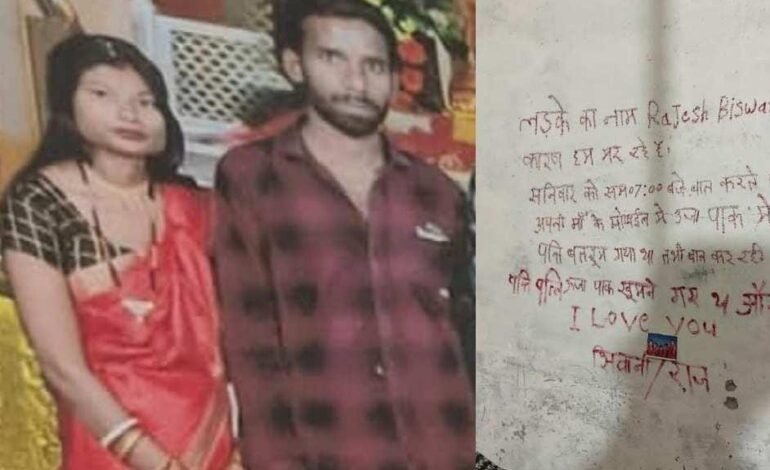 लड़के का नाम Rajesh Biswa
कारण हम मर रहे है।
सनिवार को साम 07:00 बजे बात करते
अपनी माँ के मोबाईल से ऊर्जा पार्क में
पति बातरूम गया था तभी बात कर रही
पति पत्नि ऊर्जा पार्क घुमने गए थे और
I Love You
शिवानी/राज